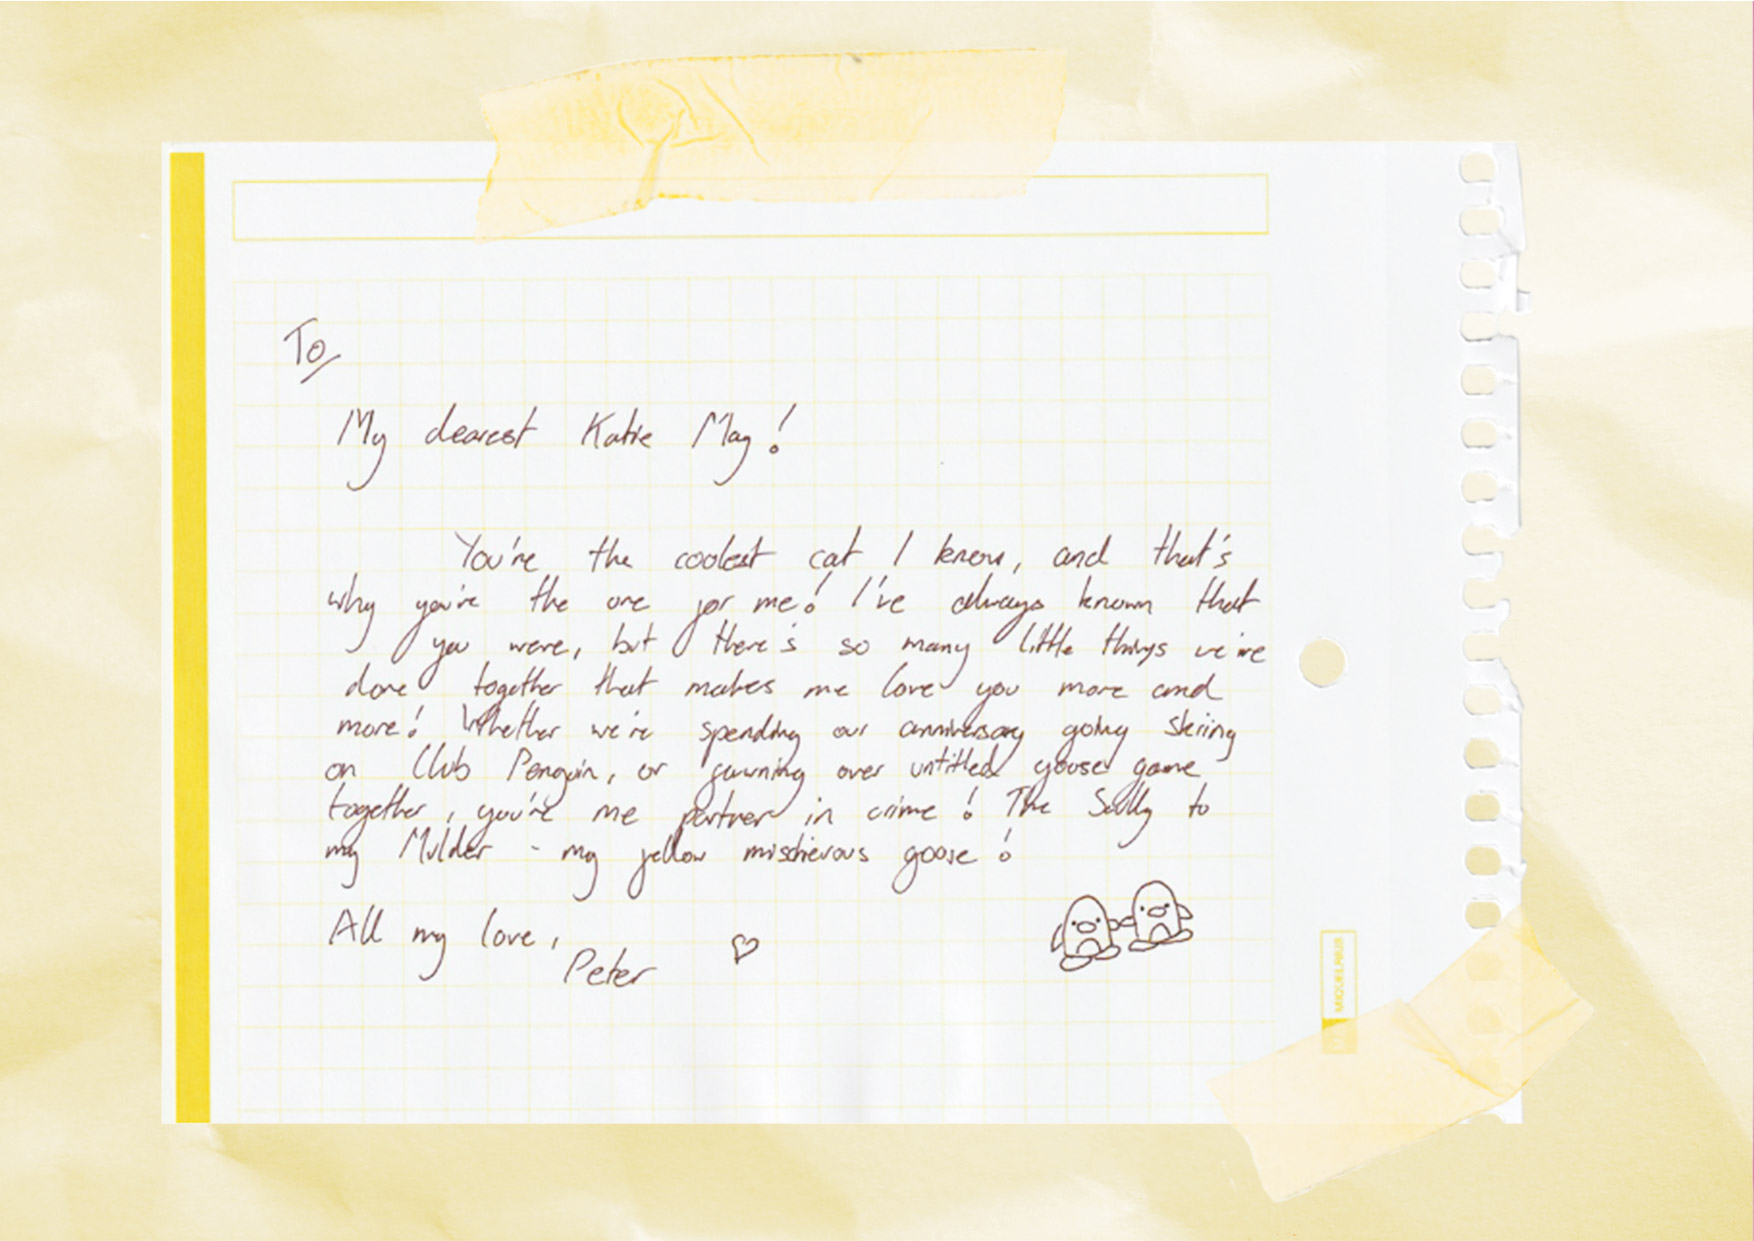 To
My dearest Katie May!
You're the coolest cat I know, and that's
why you're the one for me! I've always known that
you were, but there's so many little things we've
done together that makes me love you more and
more! Whether we're spending our anniversary going skiing
on Club Penguin, or fawning over untitled goose game
together, you're me partner in crime! The Scully to
my Mulder - my yellow mischievous goose!
All my love,
Peter
MIQUELRIUS